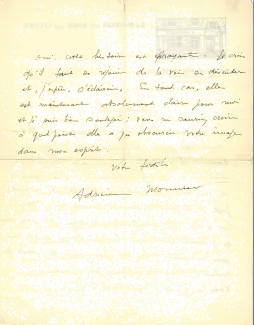 oui, cette histoire est effrayante. Je crois
qu'il faut se réjouir de la voir se dévider
et, j'espère, s'éclaircir. En tout cas, elle
est maintenant absolument claire pour moi
et je suis bien soulagée ; vous ne sauriez croire
à quel point elle a pu obscurcir votre image
dans mon esprit.
Votre fidèle
Adrienne Monnier